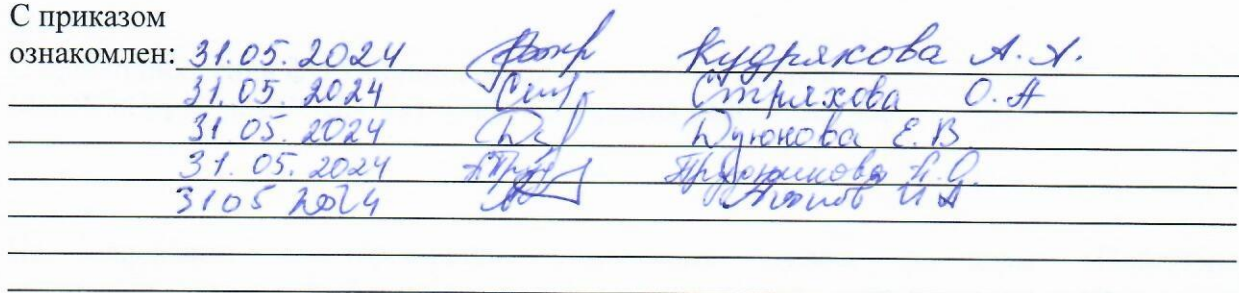 С приказом
ознакомлен: 31.05.2024 Кудрякова А.А.
31.05.2024 Стряхова О.А
31 05. 2024 Дуюнова Е.В
31.05.2024
31 05 2024 И А